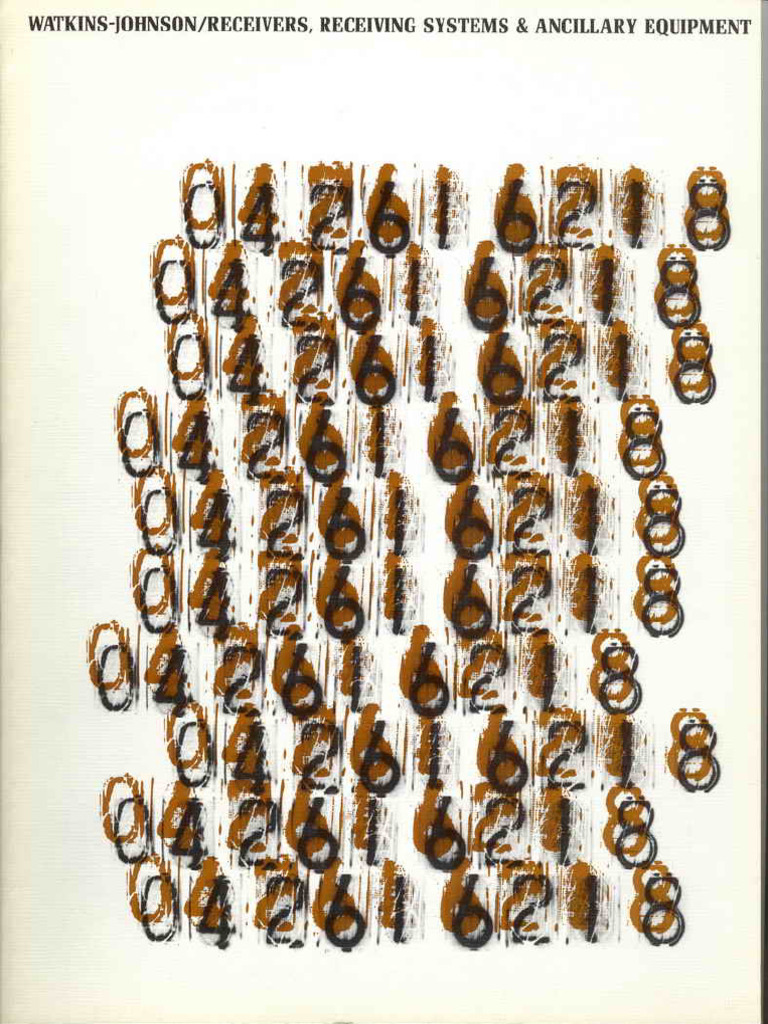 WATKINS-JOHNSON/RECEIVERS, RECEIVING SYSTEMS & ANCILLARY EQUIPMENT
0 4 2 6 1 6 2 1 8
0 4 2 6 1 6 2 1 8
0 4 2 6 1 6 2 1 8
0 4 2 6 1 6 2 1 8
0 4 2 6 1 6 2 1 8
0 4 2 6 1 6 2 1 8
0 4 2 6 1 6 2 1 8
0 4 2 6 1 6 2 1 8
0 4 2 6 1 6 2 1 8
0 4 2 6 1 6 2 1 8